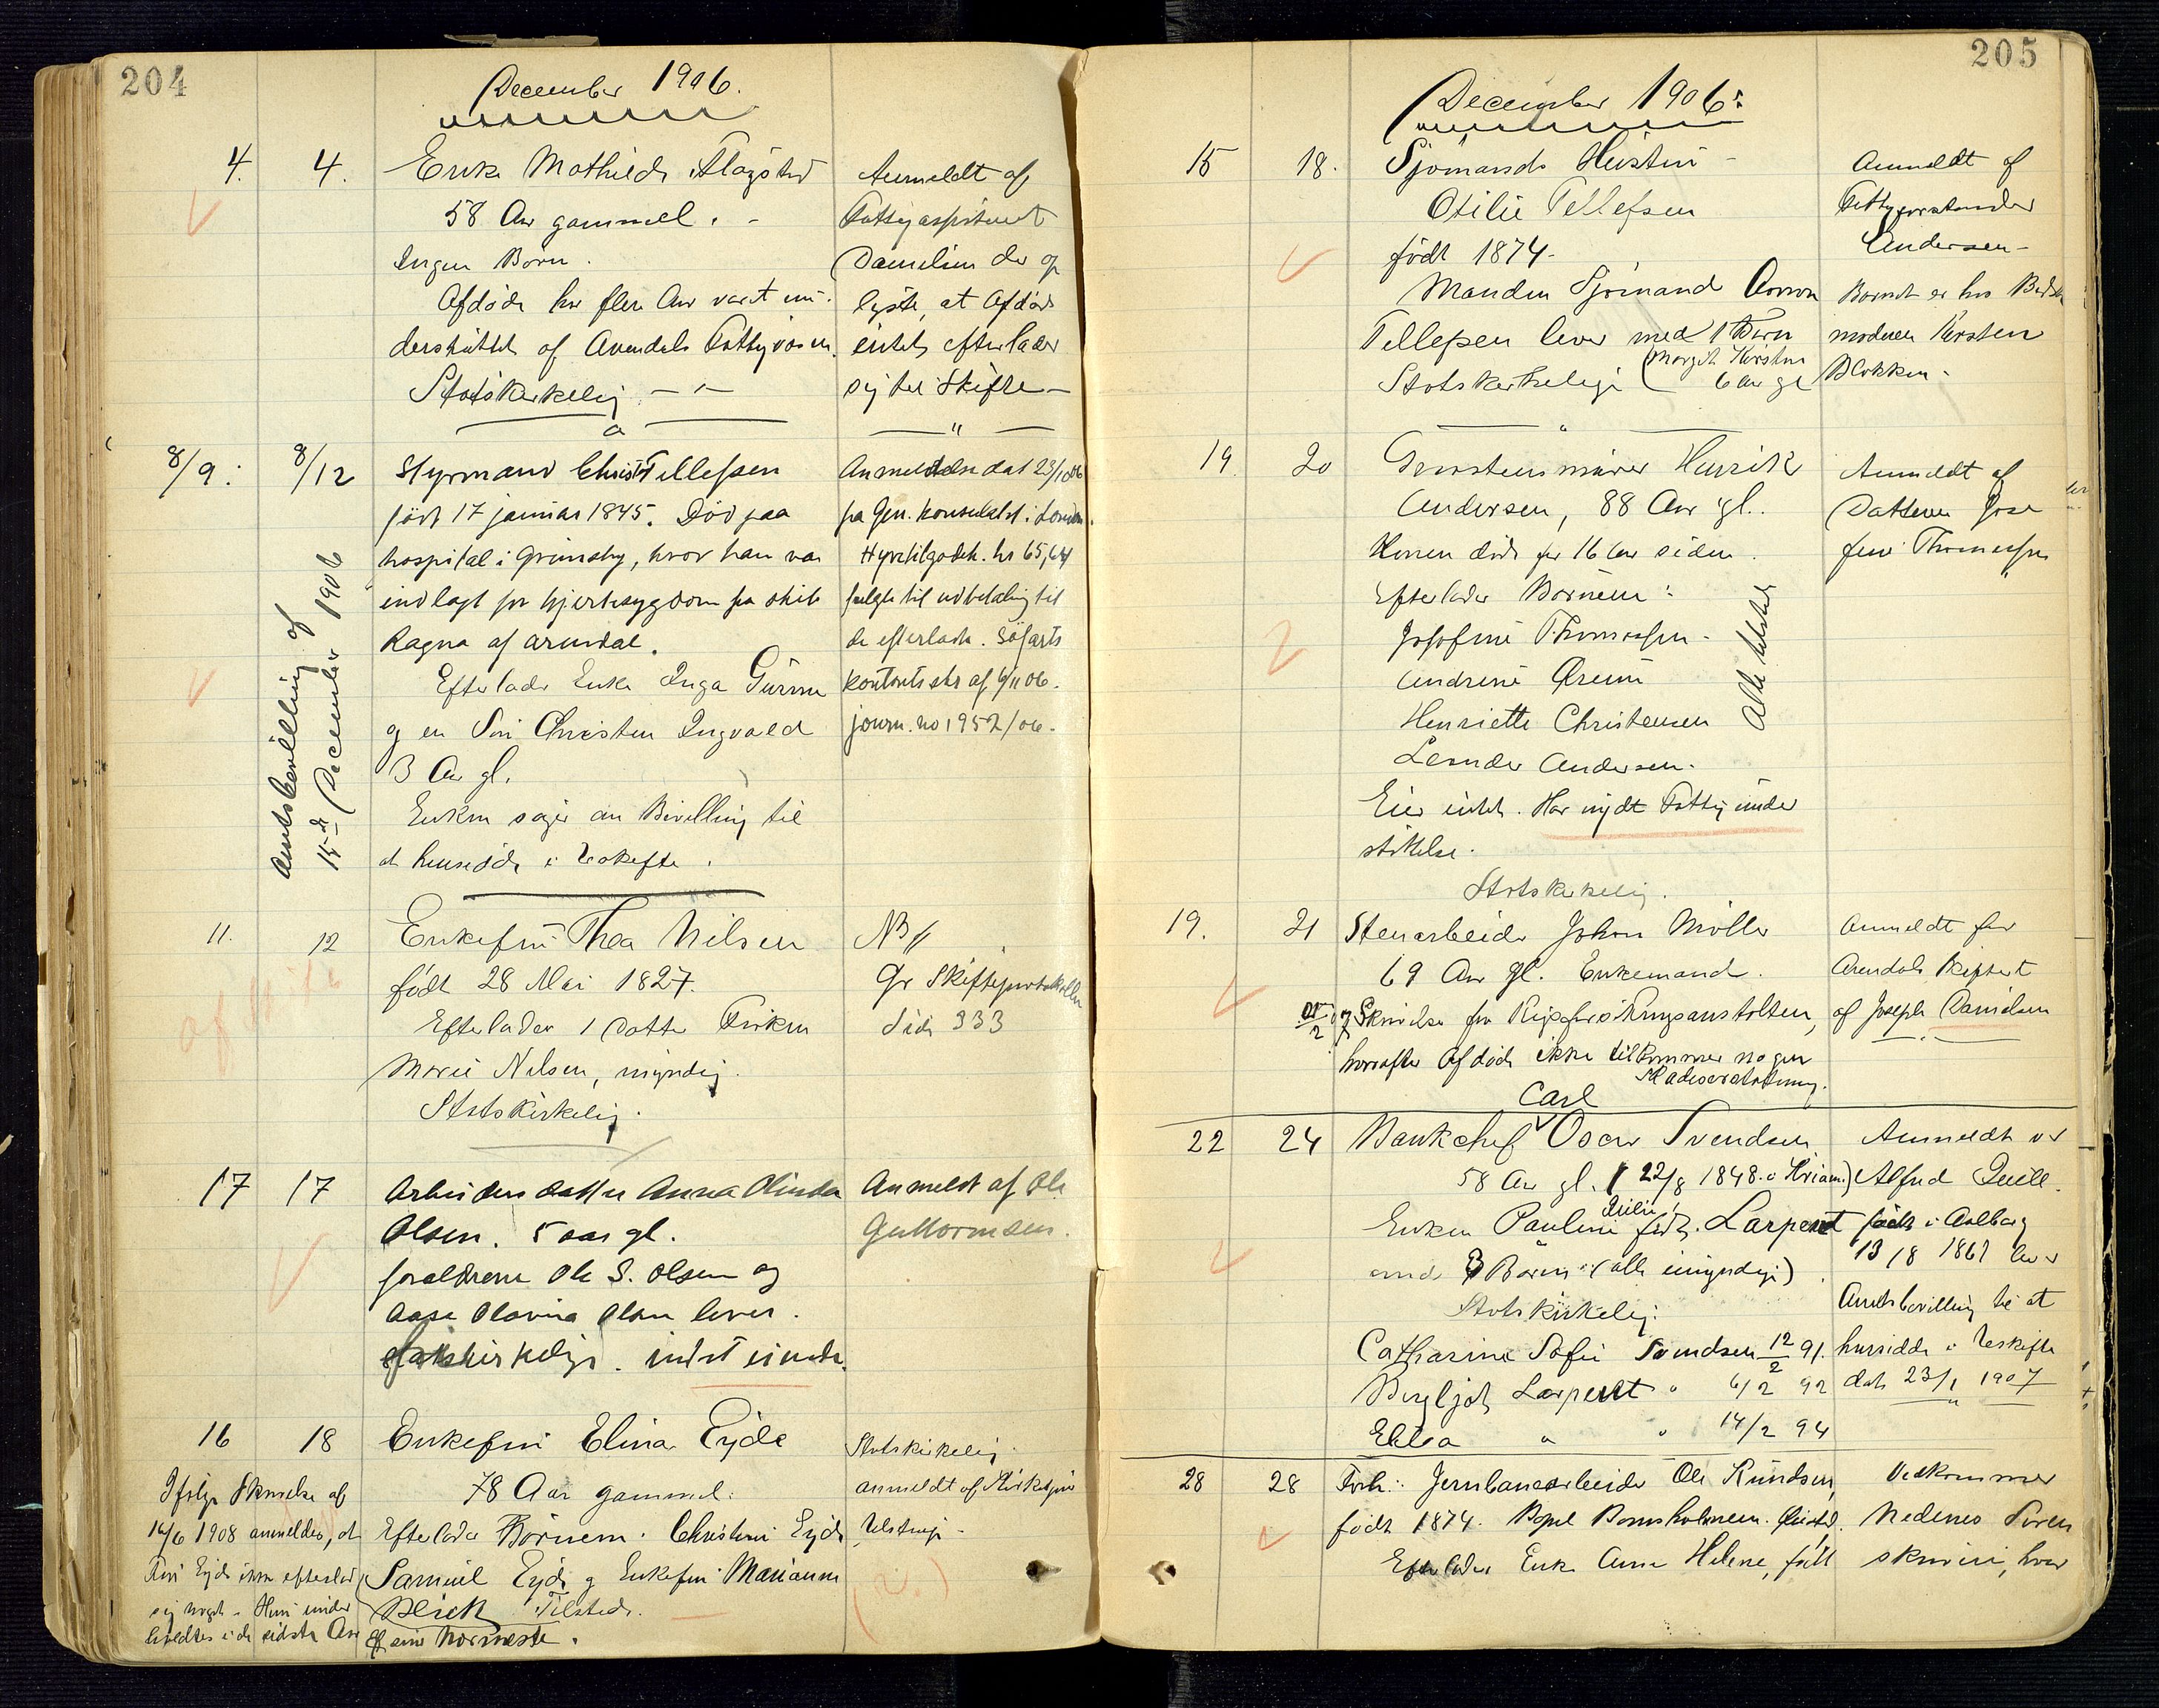 204
December 1906.
4. 4. Enke Mathilde Flagstad
58 Aar gammel. -
Ingen Børn.
Afdøde har flere Aar været un-
derstøttet af Arendals Fattigvæsen.
Statskirkelig
Anmeldt af
Fattigaspirant
Danielsen der op
lyste, at Afdøde
intet efterlader
sig til Skifte
8/9. 8/12 Styrmand Christ Tellefsen
født 17 januar 1845. Død paa
hospital i Grimsby, hvor han var
indlagt for hjertesygdom fra skib
Ragna af Arendal.
Efterlader Enke Inga
og en Søn Christen Ingvald
3 Aar gl.
Enken søger om Bevilling til
at hensidde i Uskifte.
Anmeldelse dat 23/10 06
fra Gen. konsulatet i London.
Hyretilgodeh. kr 65,64
følge til udbetaling til
de efterladte. Søfarts
kontorets skr af 6/11 06.
journ. no 1952/06.
Amtsbevilling af
15de December 1906
11. 12 Enkefru Thea Nilsen
født 28 Mai 1827.
Efterlader 1 Datter Frøken
Marie Nilsen, myndig.
Statskirkelig.
NB
Gr Skifteprotokollen
Side 333
17 17 Arbeiders datter Anna Olinda
Olsen. 5 aar gl.
forældrene Ole S. Olsen og
Aase Olovina Olsen lever.
statskirkelige. intet eiende.
Anmeldt af Ole
Guttormsen.
16 18 Enkefru Elina Eyde
78 Aar gammel.
Efterlader Børnene: Christine Eyde
Samuel Eyde og Enkefru Marianne
Tilstede.
Statskirkelig.
anmeldt af
Ifølge Skrivelse af
16/6 1908 anmeldes, at
Eyde ikke efterlod
sig noget. Hun under
holdtes i de sidste Aar
af sine nærmeste.
205
December 1906.
15 18. Sjømands Hustru -
Otilie Tellefsen
født 1874.
Manden Sjømand
Tellefsen lever med 1 Barn
Margit Kirstine
Statskirkelige 6 Aar gl
Anmeldt af
Fattigforstander
Andersen -
Barnet er hos Beste
moderen Kirsten
Blokken.
19 20 Henrik
Andersen, 88 Aar gl.
Konen døde for 16 Aar siden.
Efterlader Børnene:
Josefine Thomassen.
Andrine
Henriette Christensen
Leander Andersen.
Alle tilstede
Eier intet. Har nydt Fattigunder
støttelse.
Statskirkelig.
Anmeldt af
Datteren Jose
fine Thomassen
19. 21 Stenarbeider Johan Møller
69 Aar gl. Enkemand.
Skrivelse fra Rigsforsikringsanstalten,
hvorefter Afdøde ikke tilkommer nogen
Skadeserstatning.
Anmeldt for
Arendals Skifteret
af Joseph Danielsen
22 24 Bankchef Carl Oscar Svendsen
58 Aar gl. f 22/8 1848 i Kriania.)
Enken Pauline Julie født Larpent
med 3 Børn (alle umyndige)
Statskirkelig.
Catharina Sofie Svendsen 12/2 91.
Bergljot Larpent " 6/2 92
Ebba " " 14/2 94
Anmeldt ved
Alfred Quill.
født i Aalborg
13/8 1861 lever
Amtsbevilling til at
hensidde i Uskifte
dat 23/1 1907
28 28 Forh: Jernbanearbeider Ole Knudsen,
født 1874.
Efterlader Enke Anne Helene, født
Vedkommer
Nedenes Soren
skriveri, hvor